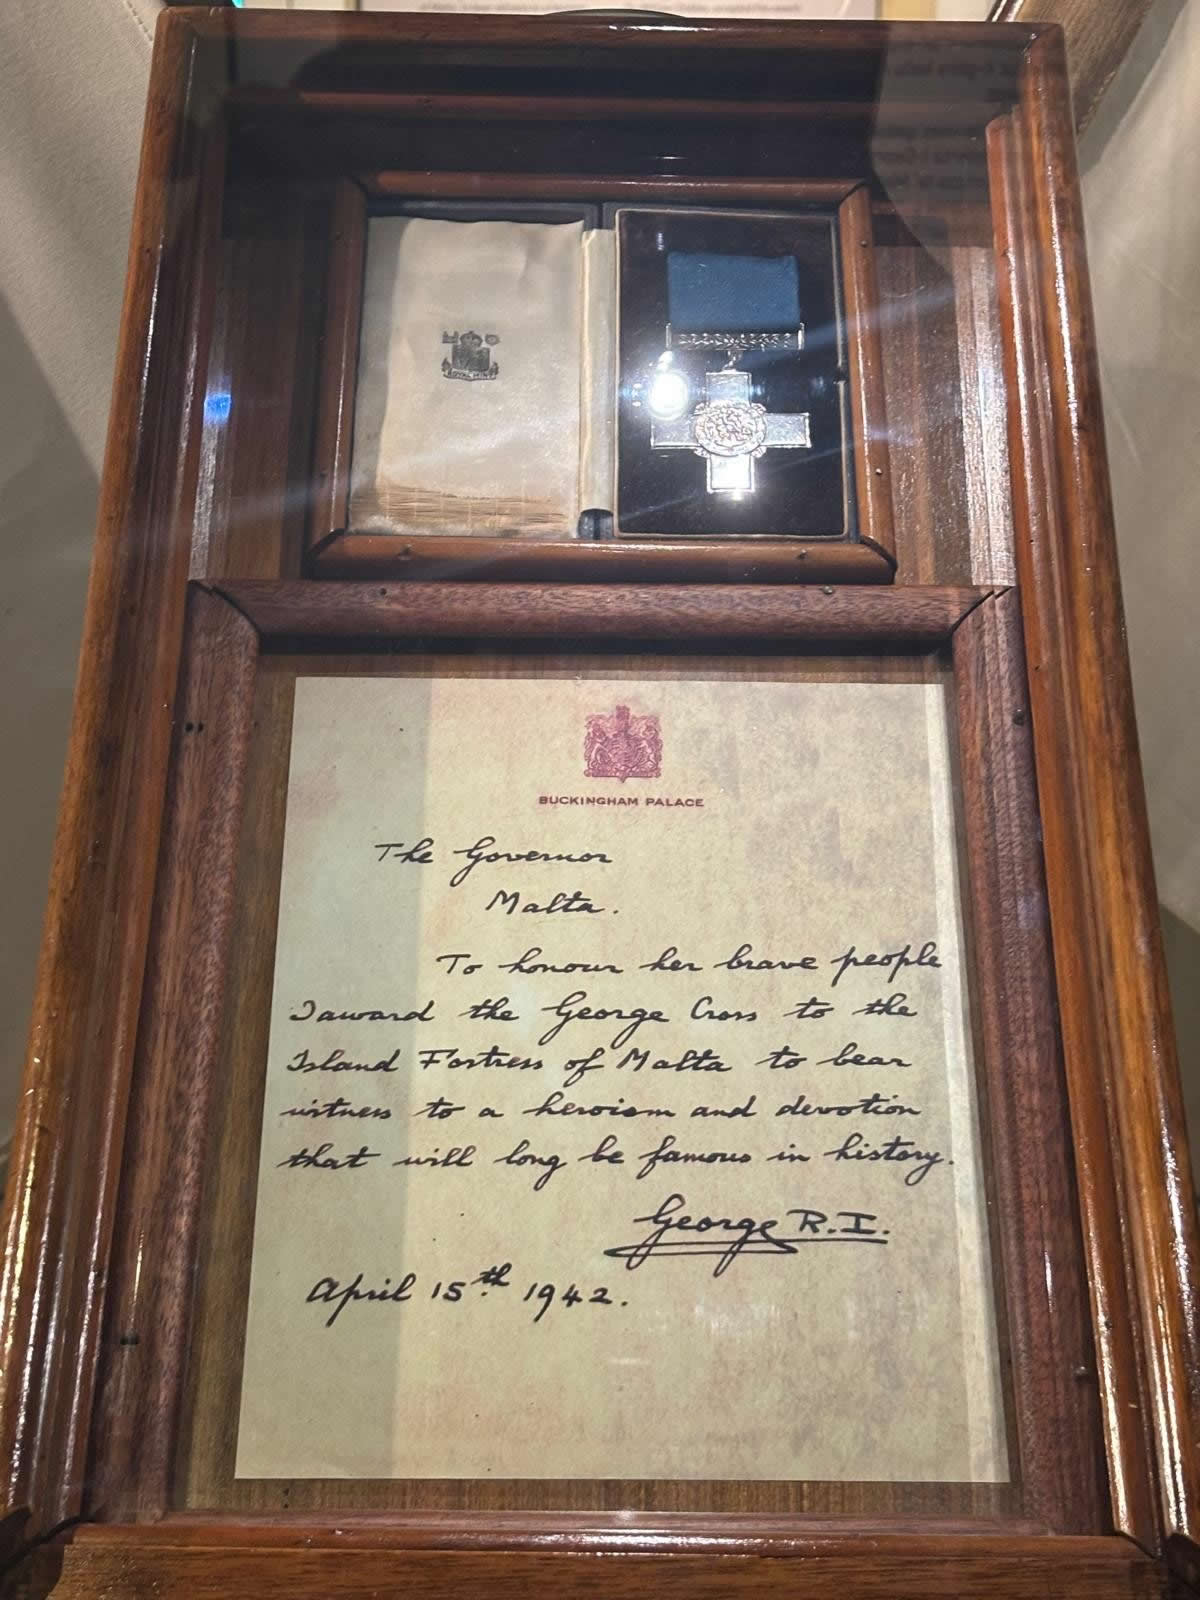 ROYAL MINT
BUCKINGHAM PALACE
The Governor
Malta.
To honour her brave people
I award the George Cross to the
Island Fortress of Malta to bear
witness to a heroism and devotion
that will long be famous in history.
George R.I.
April 15th 1942.